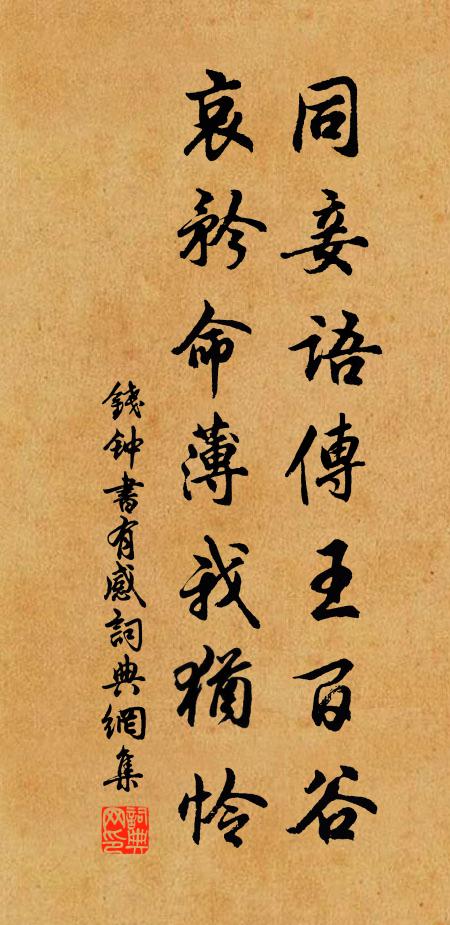 同妾語傳王百谷
哀矜命薄我猶怜
錢钟書有感詞典網集
詞典网印